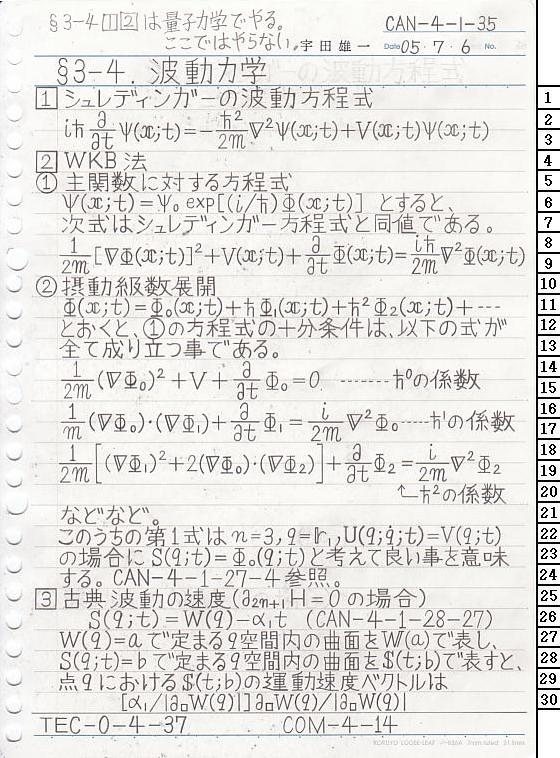 §3-4 1 2 は量子力学でやる。
ここではやらない。宇田雄一
CAN-4-1-35
Date 05・7・6 No.
§3-4. 波動力学
1 シュレディンガーの波動方程式
iħ ∂/∂t Ψ(x;t)=-ħ²/2m ∇²Ψ(x;t)+V(x;t)Ψ(x;t)
2 WKB法
① 主関数に対する方程式
Ψ(x;t)=Ψ₀ exp[(i/ħ)Φ(x;t)] とすると、
次式はシュレディンガー方程式と同値である。
1/2m [∇Φ(x;t)]²+V(x;t)+∂/∂t Φ(x;t)=iħ/2m ∇²Φ(x;t)
② 摂動級数展開
Φ(x;t)=Φ₀(x;t)+ħΦ₁(x;t)+ħ²Φ₂(x;t)+---
とおくと、①の方程式の十分条件は、以下の式が
全て成り立つ事である。
1/2m (∇Φ₀)²+V+∂/∂t Φ₀=0 ------- ħ⁰の係数
1/m (∇Φ₀)・(∇Φ₁)+∂/∂t Φ₁=i/2m ∇²Φ₀-----ħ¹の係数
1/2m [(∇Φ₁)²+2(∇Φ₀)・(∇Φ₂)]+∂/∂t Φ₂=i/2m ∇²Φ₂
↖ħ²の係数
などなど。
このうちの第1式は n=3,q=r₁,U(q;q̇;t)=V(q;t)
の場合に S(q;t)=Φ₀(q;t)と考えて良い事を意味
する。CAN-4-1-27-4 参照。
3 古典波動の速度(∂₂ₙ₊₁H=0の場合)
S(q;t)=W(q)-α₁t (CAN-4-1-28-27)
W(q)=aで定まるq空間内の曲面を𝕎(a)で表し、
S(q;t)=bで定まるq空間内の曲面を$(t;b)で表すと、
点qにおける$(t;b)の運動速度ベクトルは
[α₁/|∂□W(q)|]∂□W(q)/|∂□W(q)|
TEC-0-4-37 COM-4-14
KOKUYO LOOSE-LEAF ノ-836A 7mm ruled 31 lines
1
2
3
4
5
6
7
8
9
10
11
12
13
14
15
16
17
18
19
20
21
22
23
24
25
26
27
28
29
30